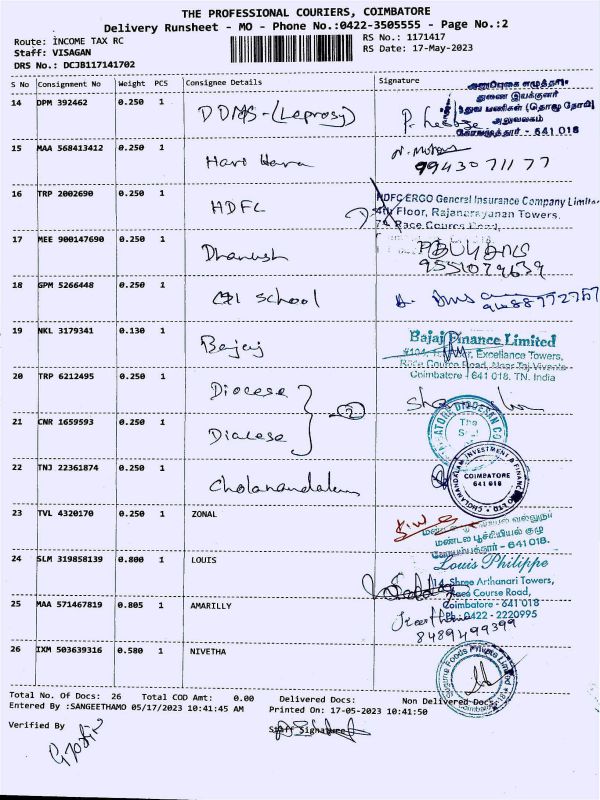 THE PROFESSIONAL COURIERS, COIMBATORE
Delivery Runsheet - MO - Phone No.:0422-3505555 - Page No.:2
Route: INCOME TAX RC
Staff: VISAGAN
DRS No.: DCJB117141702
RS No.: 1171417
RS Date: 17-May-2023
S No Consignment No Weight PCS Consignee Details Signature
14 DPM 392462 0.250 1 DDMS-(Leprosy)
துணை இயக்குனர்
அலுவலகம்
641 018
15 MAA 568413412 0.250 1 Hari Hara
9943071177
16 TRP 2002690 0.250 1 HDFC
HDFC ERGO General Insurance Company Limite
4th Floor, Rajanarayanan Towers,
Race Course Road,
17 MEE 900147690 0.250 1 Dhanush
18 GPM 5266448 0.250 1 school
19 NKL 3179341 0.130 1 Bajaj
Bajaj Finance Limited
Excellance Towers,
Race Course Road, Near Taj Vivanta
Coimbatore - 641 018. TN. India
20 TRP 6212495 0.250 1 Diocese
2
21 CNR 1659593 0.250 1 Diocese
22 TNJ 22361874 0.250 1 Cholanandalam
CHOLAMANDALAM INVESTMENT & FINANCE
COIMBATORE
641 018
23 TVL 4320170 0.250 1 ZONAL
மண்டல பூச்சியியல் குழு
641018.
24 SLM 319858139 0.800 1 LOUIS
Louis Philippe
14, Shree Arthanari Towers,
Race Course Road,
Coimbatore - 641 018
Ph: 0422 - 2220995
25 MAA 571467819 0.805 1 AMARILLY
8489499399
26 IXM 503639316 0.580 1 NIVETHA
Foods Private Limited
Total No. Of Docs: 26 Total COD Amt: 0.00 Delivered Docs: Non Delivered Docs:
Entered By :SANGEETHAMO 05/17/2023 10:41:45 AM Printed On: 17-05-2023 10:41:50
Verified By
Staff Signature